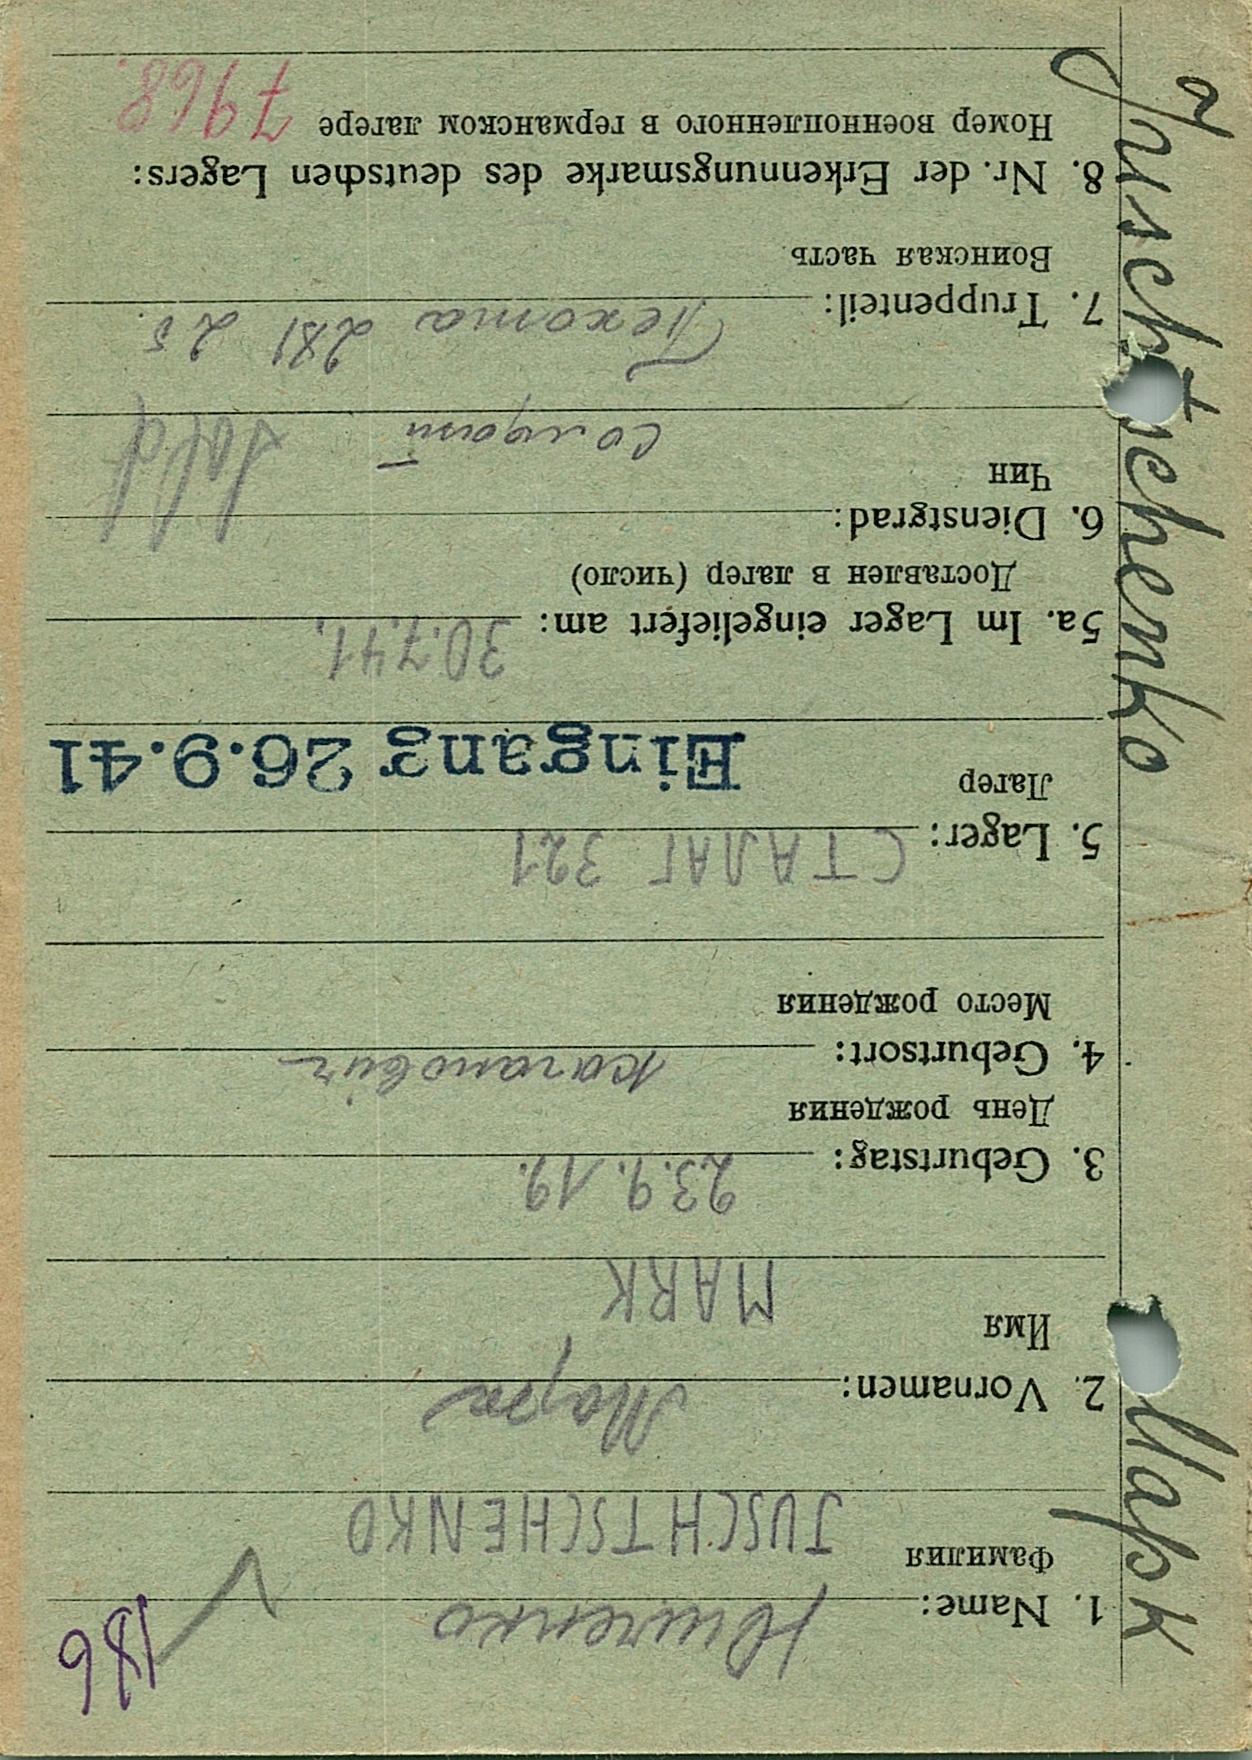 186
1. Name: Ющенко
Фамилия
JUSCHTSCHENKO
2. Vornamen: Марк
Имя
MARK
3. Geburtstag: 23.9.19.
День рождения
4. Geburtsort: каганович
Место рождения
5. Lager: СТАЛАГ 321
Лагер
Eingang 26.9.41
5a. Im Lager eingeliefert am: 30.7.41.
Доставлен в лагер (число)
6. Dienstgrad: Sold
Чин
солдат
7. Truppenteil: Пехота 281
Воинская часть
8. Nr. der Erkennungsmarke des deutschen Lagers:
Номер военнопленного в германском лагере 7968.
Juschtschenko
Марк